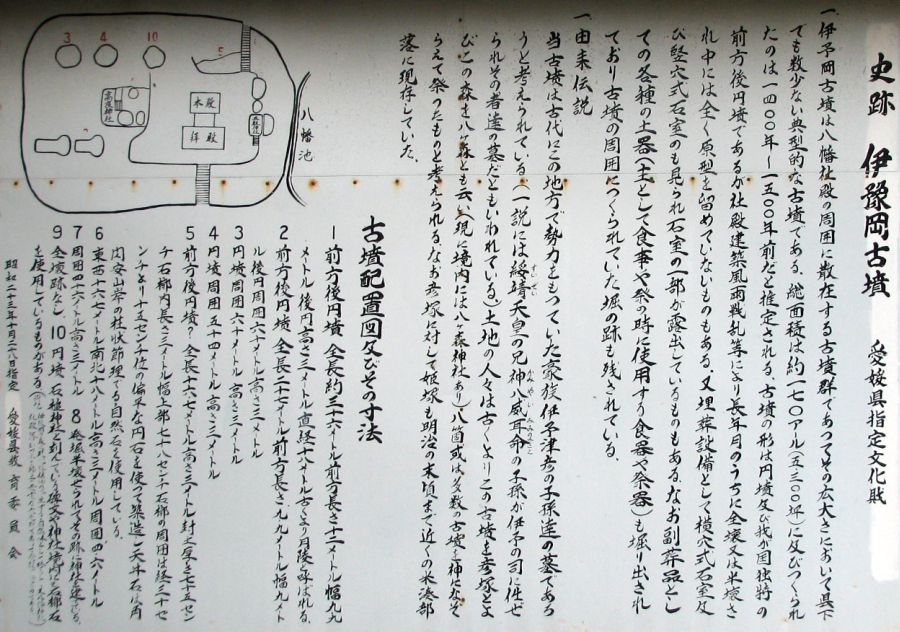 史跡 伊豫岡古墳 愛媛県指定文化財
一伊予岡古墳は八幡社殿の周囲に散在する古墳群であつてその広大さにおいて県下
でも数少ない典型的な古墳である。総面積は約一七〇アル(五三〇〇坪)に及びつくられ
たのは一四〇〇年~一五〇〇年前だと推定される。古墳の形は円墳及び我が国独特の
前方後円墳であるが社殿建築風雨戦乱等により長年月のうちに全壊又は半壊さ
れ中には全く原型を留めていないものもある。又埋葬設備として横穴式石室及
び竪穴式石室のも見られ石室の一部が露出しているものもある。なお副葬品とし
ての各種の土器(主として食事や祭の時に使用する食器や祭器)も堀り出され
ており古墳の周囲につくられていた堀の跡も残されている。
一由来伝説
当古墳は古代にこの地方で勢力をもつていた豪族伊予津彦の子孫達の墓である
うと考えられている(一説には綏靖天皇の兄神八威耳命の子孫が伊予の司に任ぜ
られその者達の墓だともいわれている)土地の人々は古くよりこの古墳を彦塚とよ
びこの森を八ヶ森とも云い(現に境内には八ヶ森神社あり)八箇或は多数の古墳を神になぞ
らえて祭つたものと考えられる。なお彦塚に対して姫塚も明治の末頃まで近くの米湊部
落に現存していた。
古墳配置図及びその寸法
1 前方後円墳 全長約三十六メートル前方長さ十二メートル幅九
メートル後円高さ三メートル直経十八メートル古くより月陵と呼ばれる。
2 前方後円墳 全長二十七メートル前方長さ九メートル幅九メート
ル後円周囲六十メートル高さ三メートル
3 円墳周囲六十メートル高さ三メートル
4 円墳周囲五十四メートル高さ三メートル
5 前方後円墳? 全長十六・七メートル高さ三メートル封土厚さ七十五セン
チ石槨内長さ三メートル幅上部七十八センチ石槨の周囲は経三十セ
ンチより十五センチ位の偏平な円石を使つて築造し天井石は角
閃安山岩の柱状節理である自然石を使用している。
6 東西十六メートル南北十八メートル高さ三メートル周囲四六メートル
7 周囲四十六メートル高さ三メートル 8 発堀半壊せられその跡に神社を建てる。
9 全壊跡なし 10 円墳 石槌神社を刻んでいる碑文や神社境内に石槨石
を使用しているものがある
昭和二十三年十月二八日指定 愛媛県教育委員会
3
4
10
5
本殿
拝殿
八幡池